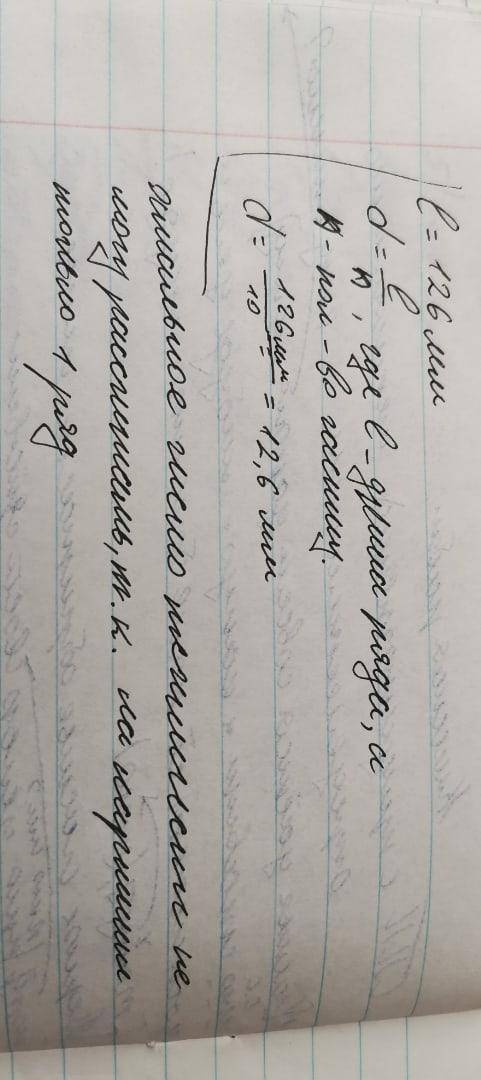 l = 126 мм
d = l/n, где l - длина ряда, а
n - кол-во частиц.
d = 126мм/10 = 12,6 мм
число не
могу рассчитать, т.к. на картинке
только 1 ряд